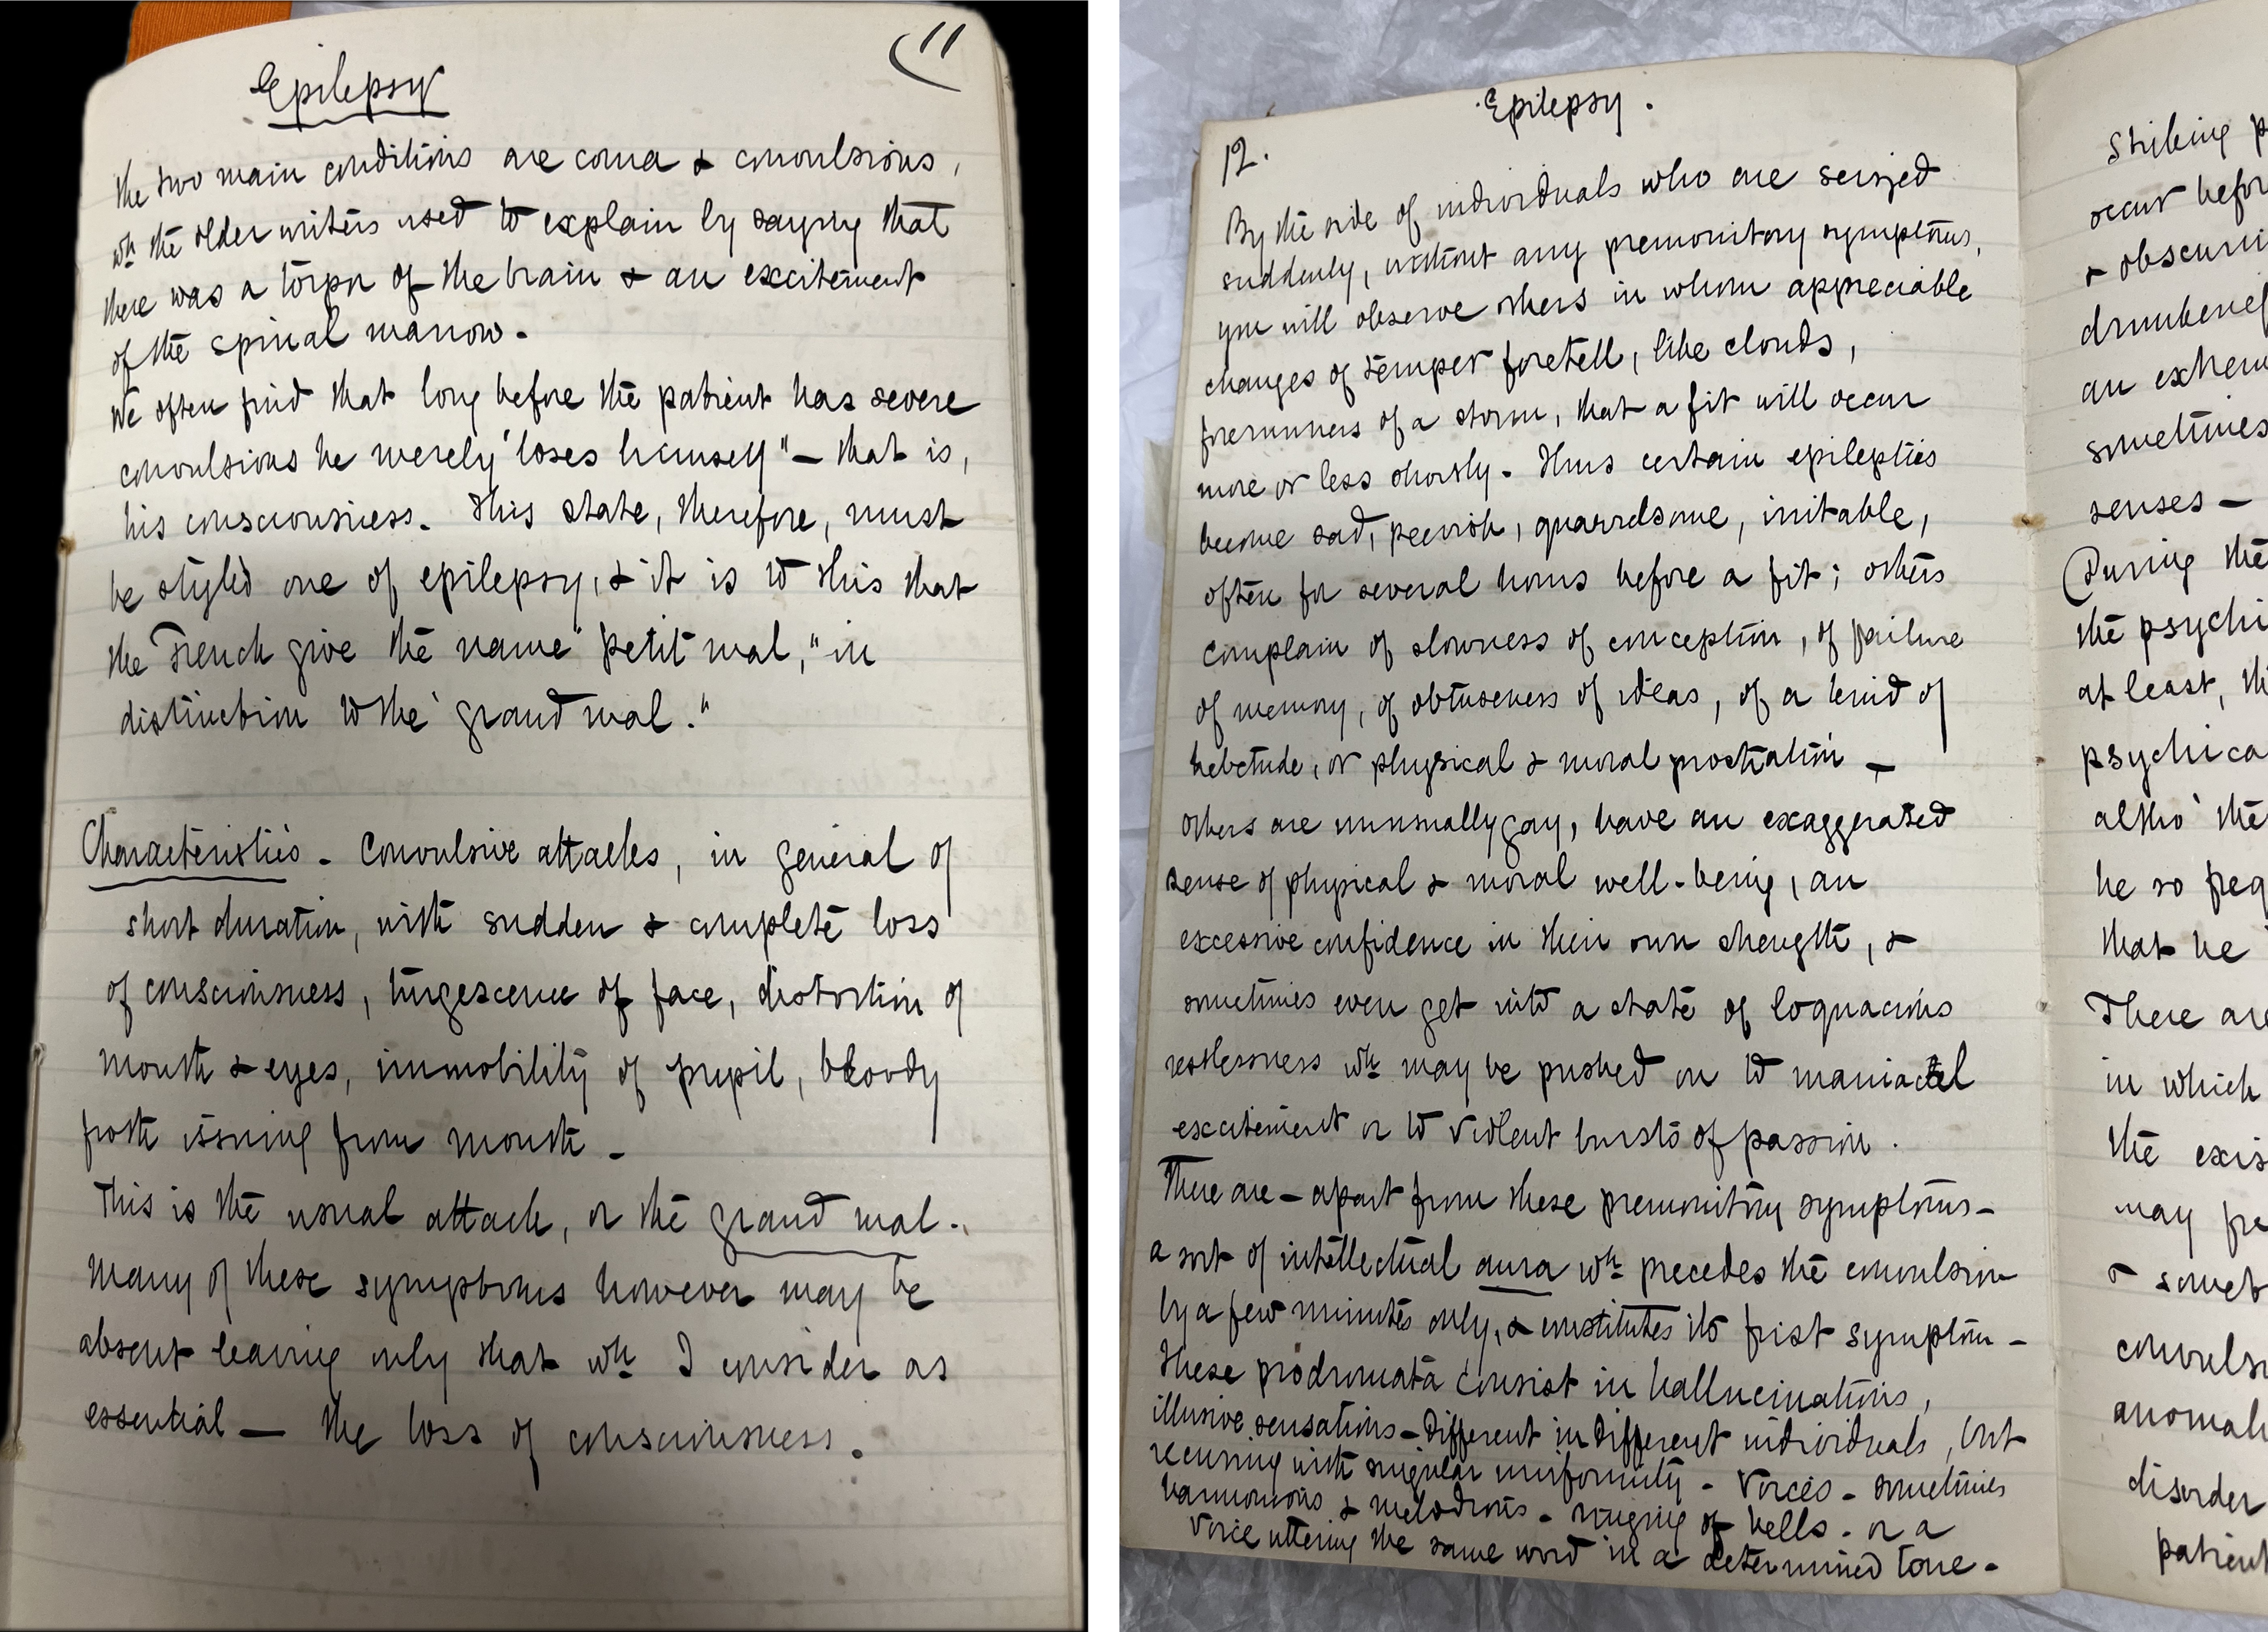 (11
Epilepsy
The two main conditions are coma & convulsions,
wh the older writers used to explain by saying that
there was a torpor of the brain & an excitement
of the spinal marrow.
We often find that long before the patient has severe
convulsions he merely "loses himself" — that is,
his consciousness. This state, therefore, must
be styled one of epilepsy, & it is to this that
the French give the name "petit mal," in
distinction to the "grand mal."
Characteristics - Convulsive attacks, in general of
short duration, with sudden & complete loss
of consciousness, turgescence of face, distortion of
mouth & eyes, immobility of pupil, bloody
froth issuing from mouth -
This is the usual attack, or the grand mal.
Many of these symptoms however may be
absent leaving only that wh I consider as
essential — the loss of consciousness.
Epilepsy.
12.
By the side of individuals who are seized
suddenly, without any premonitory symptoms,
you will observe others in whom appreciable
changes of temper foretell, like clouds,
forerunners of a storm, that a fit will occur
more or less shortly - Thus certain epileptics
become sad, peevish, quarrelsome, irritable,
often for several hours before a fit; others
complain of slowness of conception, of failure
of memory, of obtuseness of ideas, of a kind of
hebetude, or physical & moral prostration -
others are unusually gay, have an exaggerated
sense of physical & moral well-being, an
excessive confidence in their own strength, &
sometimes even get into a state of loquacious
restlessness wh may be pushed on to maniacal
excitement or to violent bursts of passion.
There are - apart from these premonitory symptoms -
a sort of intellectual aura wh precedes the convulsion
by a few minutes only, & constitutes its first symptom -
These prodromata consist in hallucinations,
illusive sensations - different in different individuals, but
recurring with singular uniformity - Voices - sometimes
harmonious & melodious - ringing of bells - or a
voice uttering the same word in a determined tone -
Striking
occur befor
& obscuri
an
sometimes
senses -
During the
the psychi
at least, th
psychica
altho' the
be so freq
that he
There are
in which
the exis
may fre
& somet
convuls
anomal
disorder
patient